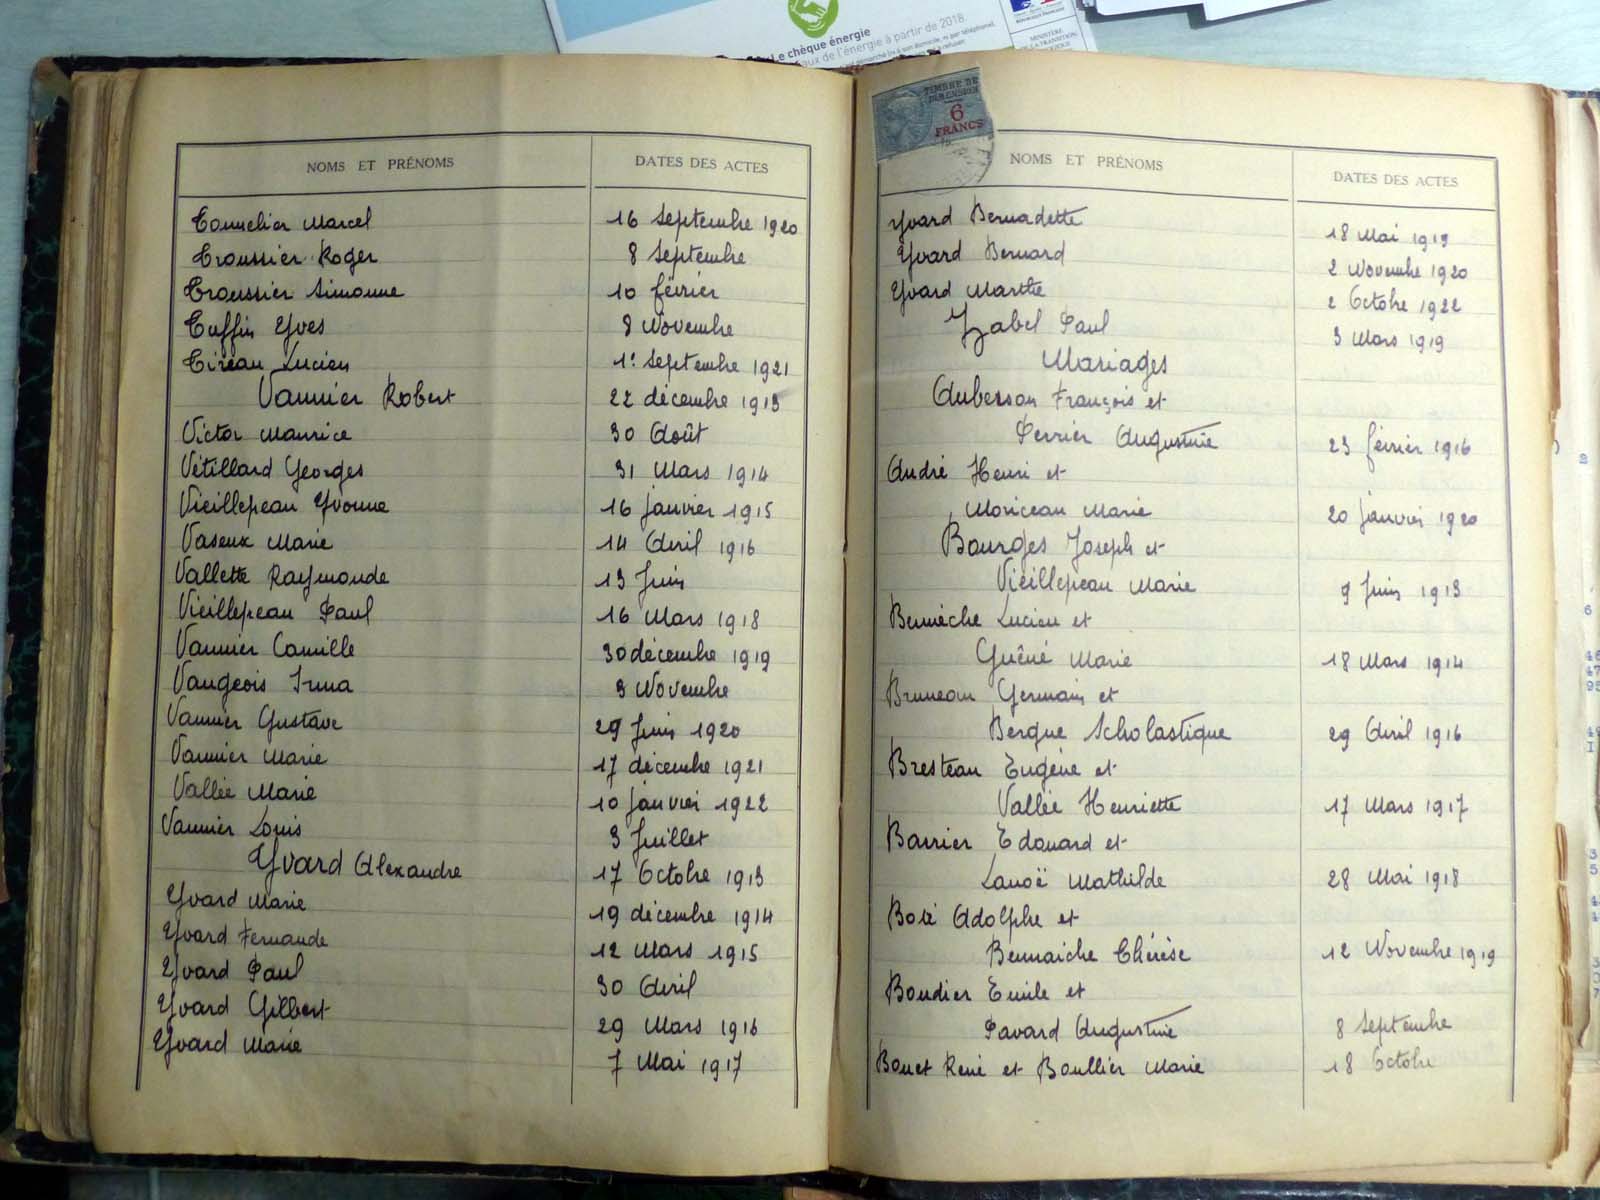 Le chèque énergie
aux de l'énergie à partir de 2018.
RÉPUBLIQUE FRANÇAISE
MINISTÈRE
DE LA TRANSITION
TIMBRE DE
DIMENSION
6
FRANCS
NOMS ET PRÉNOMS DATES DES ACTES
Tonnelier Marcel 16 Septembre 1920
Troussier Roger 8 Septembre
Troussier Simonne 10 février
Tuffin Yves 8 Novembre
Tireau Lucien 1er Septembre 1921
Vannier Robert 22 décembre 1913
Victor Maurice 30 Août
Vétillard Georges 31 Mars 1914
Vieillepeau Yvonne 16 janvier 1915
Vaseux Marie 14 Avril 1916
Vallette Raymonde 13 Juin
Vieillepeau Paul 16 Mars 1918
Vannier Camille 30 décembre 1919
Vaugeois Irma 3 Novembre
Vannier Gustave 29 Juin 1920
Vannier Marie 17 décembre 1921
Vallée Marie 10 janvier 1922
Vannier Louis 3 Juillet
Yvard Alexandre 17 Octobre 1913
Yvard Marie 19 décembre 1914
Yvard Fernande 12 Mars 1915
Yvard Paul 30 Avril
Yvard Gilbert 29 Mars 1916
Yvard Marie 7 Mai 1917
NOMS ET PRÉNOMS DATES DES ACTES
Yvard Bernadette 18 Mai 1919
Yvard Bernard 2 Novembre 1920
Yvard Marthe 2 Octobre 1922
Zabel Paul 3 Mars 1919
Mariages
Auberson François et
Perrier Augustine 23 février 1916
André Henri et
Moriceau Marie 20 janvier 1920
Bourges Joseph et
Vieillepeau Marie 9 Juin 1913
Bennèche Lucien et
Guêné Marie 18 Mars 1914
Bruneau Germain et
Bergue Scholastique 29 Avril 1916
Bresteau Eugène et
Vallée Henriette 17 Mars 1917
Barrier Edouard et
Lanoë Mathilde 28 Mai 1918
Boré Adolphe et
Bennaiche Thérèse 12 Novembre 1919
Boudier Emile et
Pavard Augustine 8 Septembre
Bouet René et Boullier Marie 18 Octobre